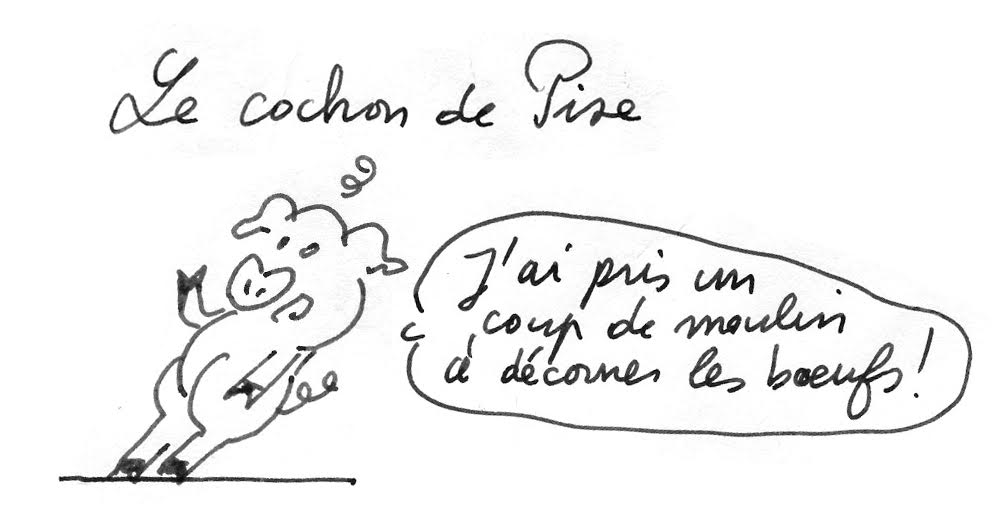 Le cochon de Pise
J'ai pris un
coup de moulin
à décorner les bœufs !